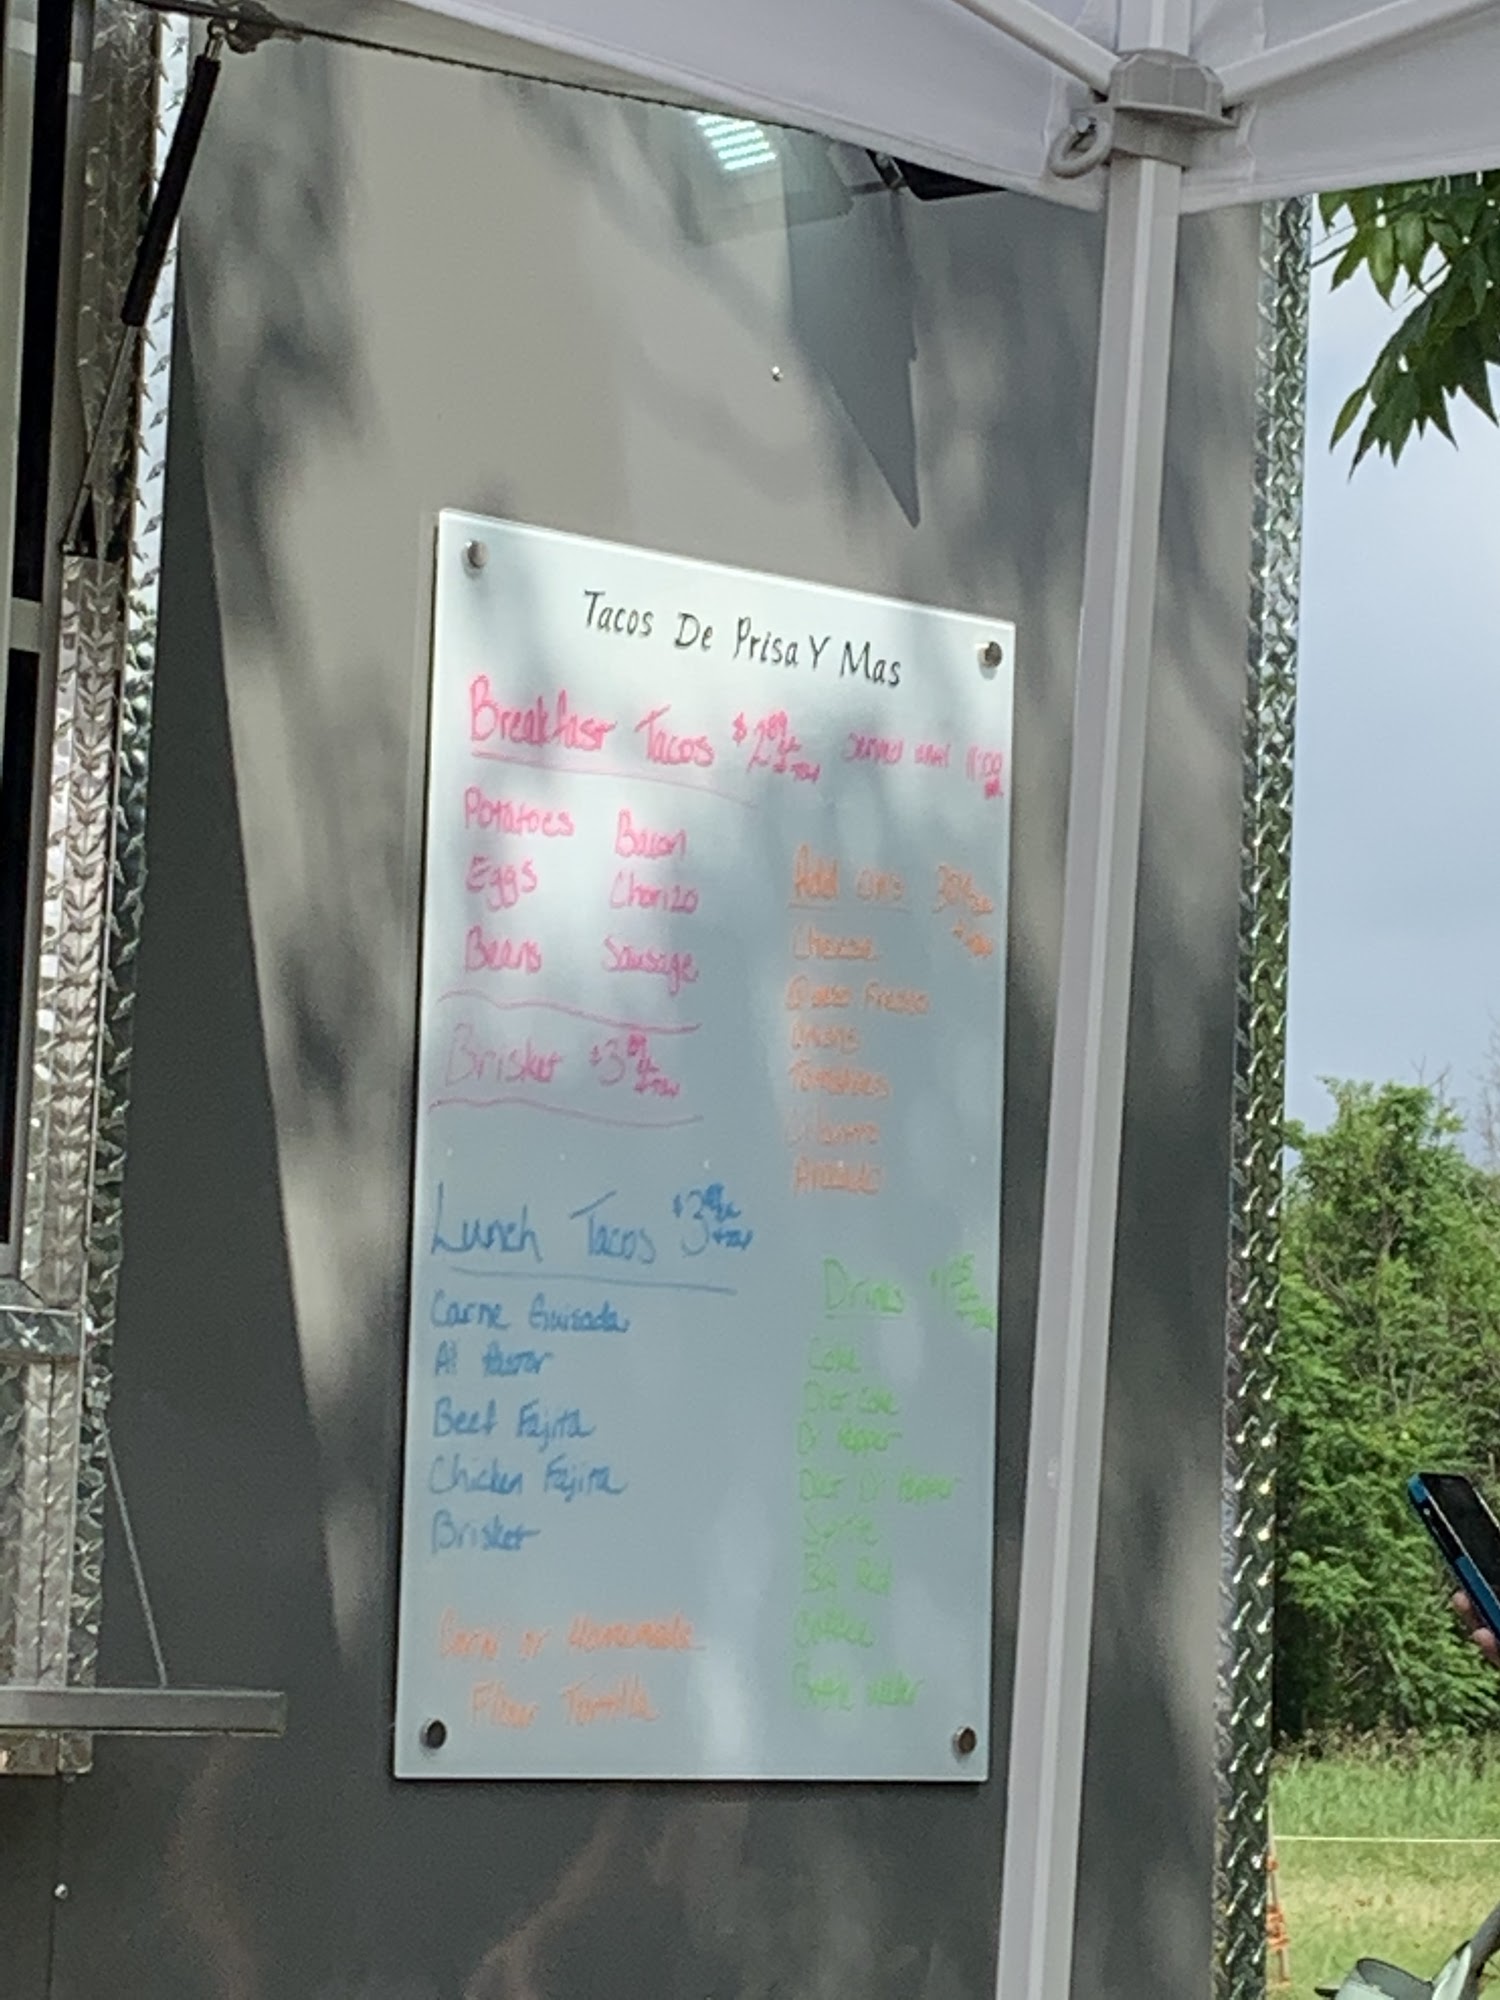 Tacos De Prisa Y Mas
Breakfast Tacos $2.89 ea +tax served until 11:00
Potatoes Bacon
Eggs Chorizo
Beans Sausage
Brisket $3.89 ea +tax
Add ons 30¢ ea
+tax
Cheese
Queso Fresco
Onions
Tomatoes
Cilantro
Avocado
Lunch Tacos $3 ea +tax
Carne Guisada
Al Pastor
Beef Fajita
Chicken Fajita
Brisket
Corn or Homemade
Flour Tortilla
Drinks $1.25 ea +tax
Coke
Diet Coke
Dr Pepper
Diet Dr Pepper
Sprite
Big Red
Coffee
Bottle water